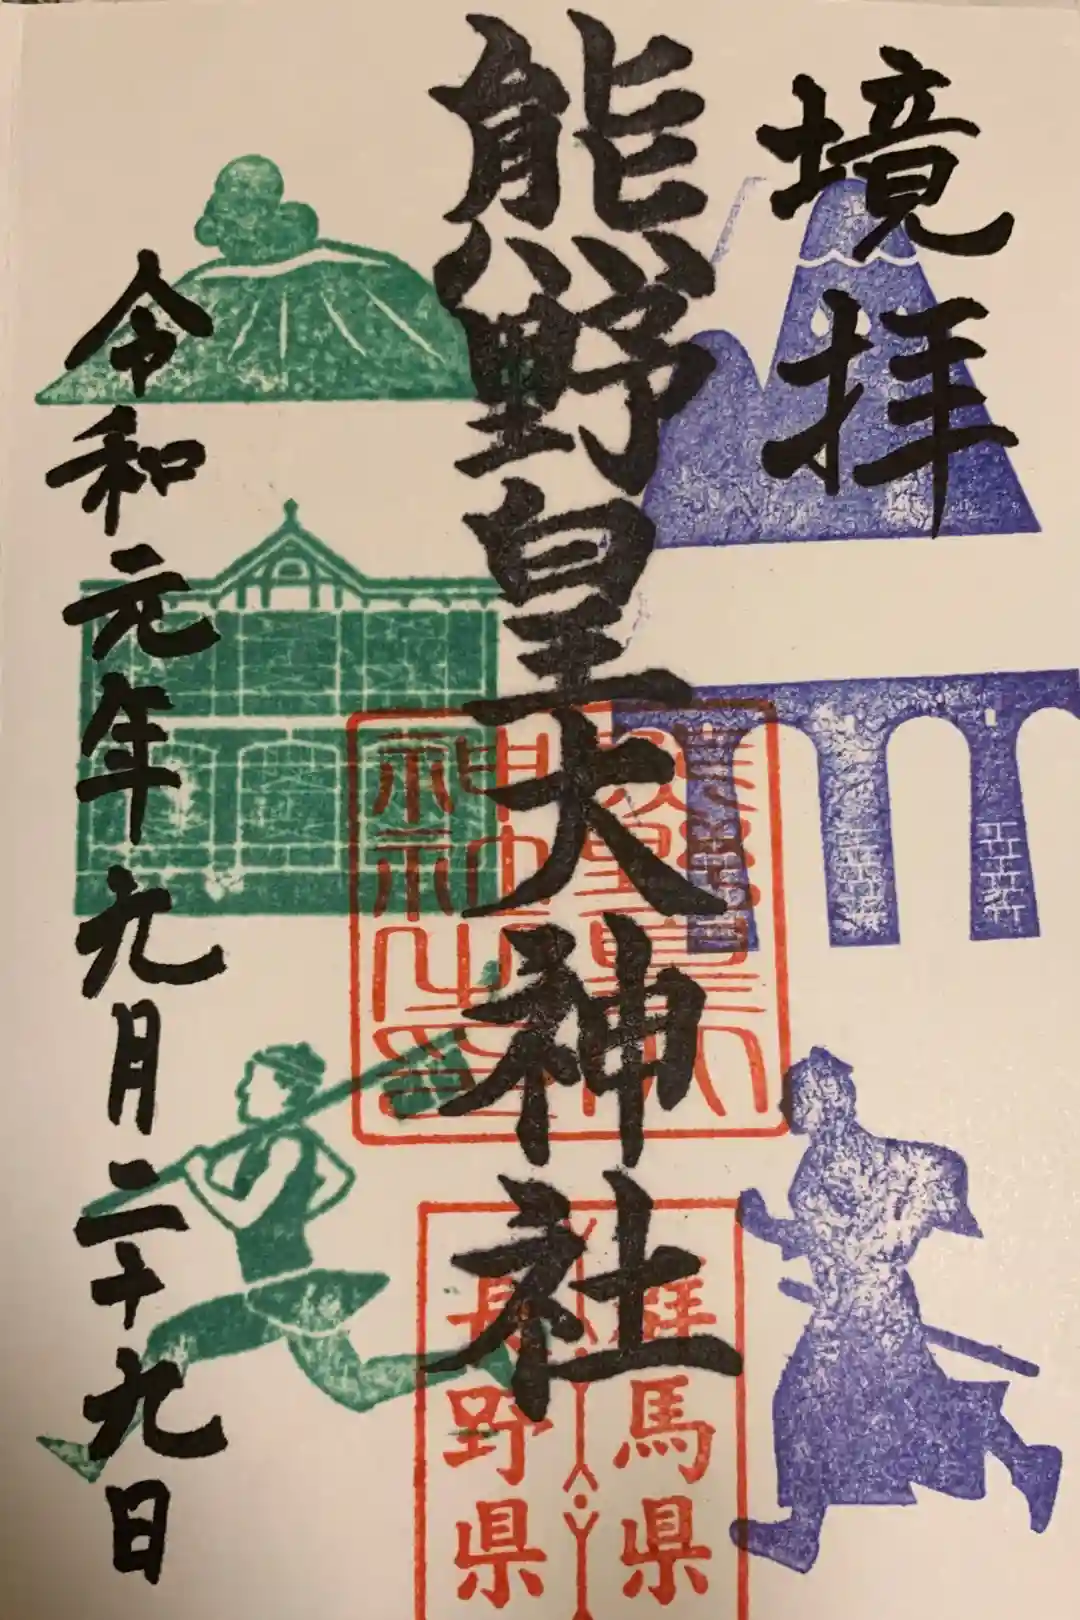 境拝
熊野皇大神社
令和元年九月二十九日
群馬県
長野県